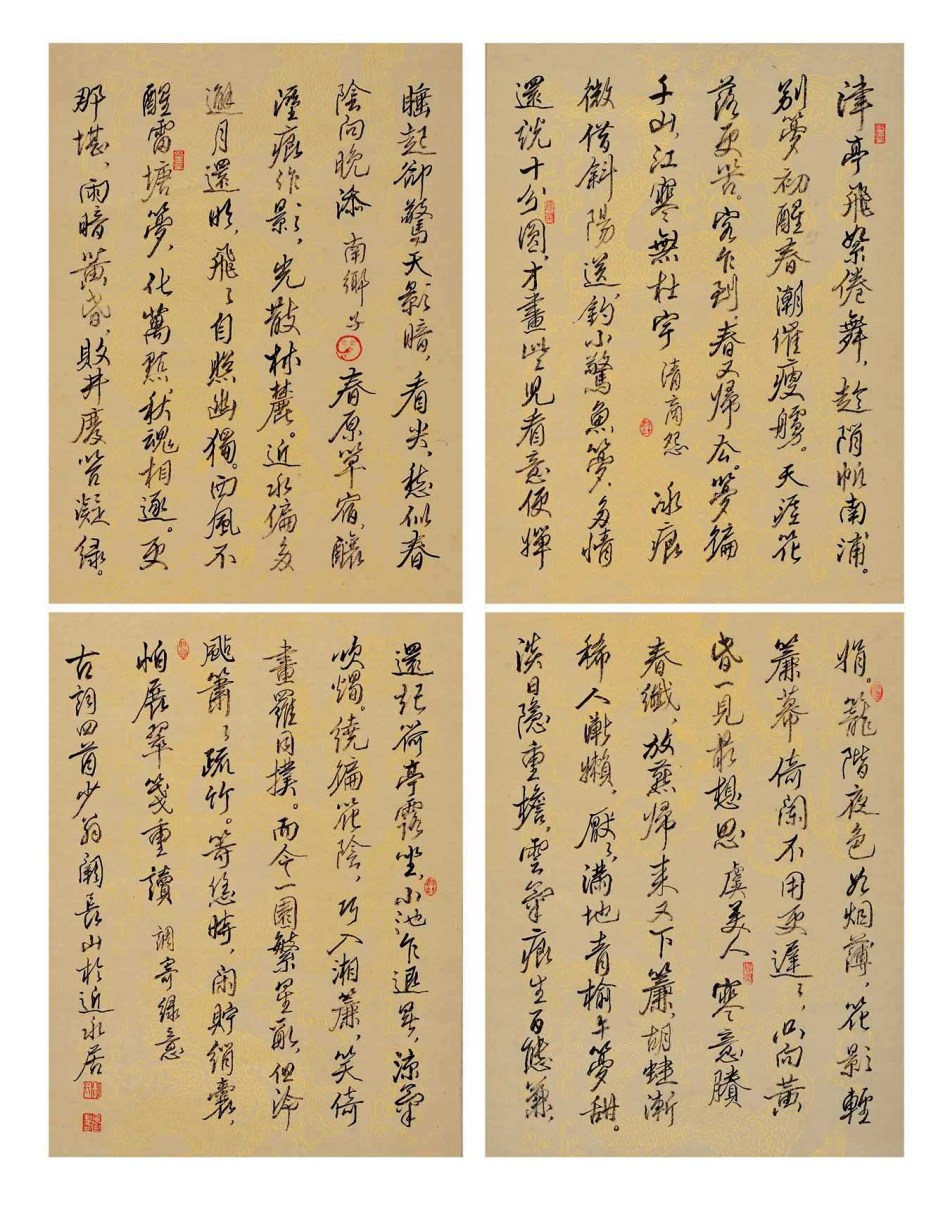 津亭飛絮倦舞,趁閒帆南浦。
別夢初醒春潮催瘦艣。天涯花
落更苦。客乍到,春又歸去。夢徧
千山,江寒無杜宇 清商怨 冰痕
微借斜陽送,釣小驚魚夢,多情
還說十分圓,才畫些兒眉意便嬋
娟。籠階夜色如烟薄,花影輕
簾幕倚闌不用更遲〻,只向黃
昏一見最想思 虞美人 寒意賸
春纖,放燕歸來又下簾,胡蝶漸
稀人漸懶,厭〻,滿地青榆午夢甜。
淡日隱重檐,雲氣痕生百態兼,
睡起卻驚天影暗,眉尖,愁似春
陰向晚添 南鄉子 春原草宿,釀
溼痕作影,光散林麓。近水偏多
避月還明,飛〻自照幽獨。西風不
醒雷塘夢,化萬點,秋魂相逐。更
那堪,雨暗黃昏,敗井廢苔凝綠。
還記荷亭露坐,小池乍退暑,涼氣
吹燭。繞徧花陰,巧入湘簾,笑倚
畫羅同撲。而今一園繁星亂,但冷
颭簫〻疏竹。等恁時,閑貯絹囊,
怕展翠箋重讀 調寄綠意
古詞四首少翁闞長山於近水居